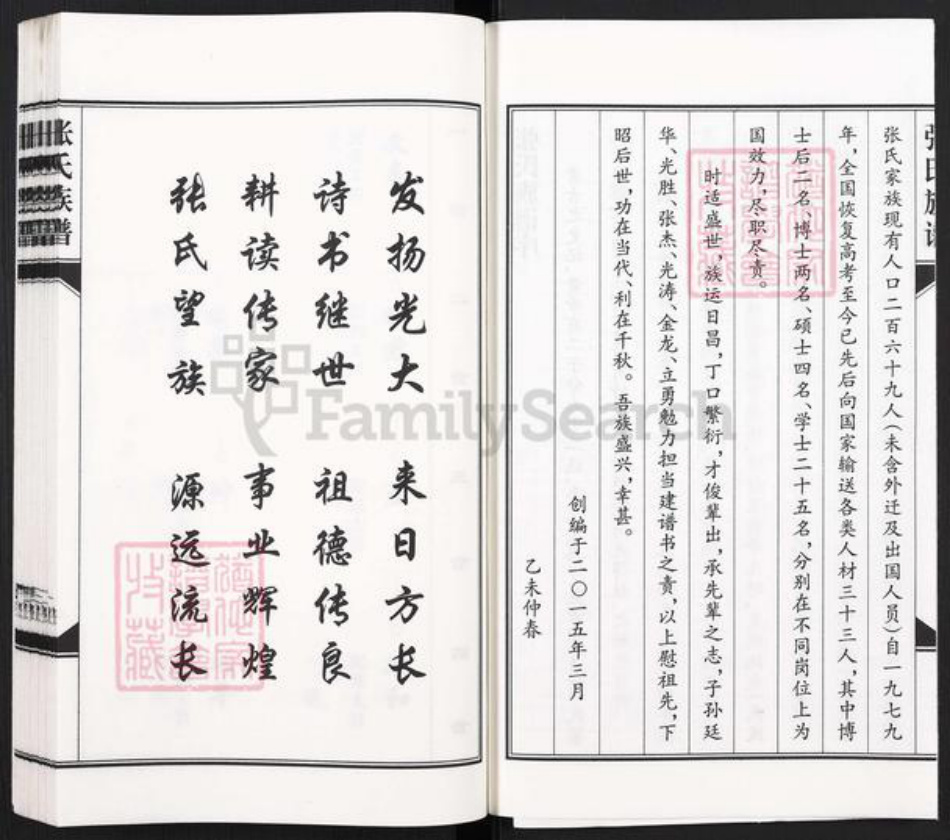 张氏族谱
张氏家族现有人口二百六十九人（未含外迁及出国人员）自一九七九
年，全国恢复高考至今已先后向国家输送各类人材三十三人，其中博
士后二名、博士两名、硕士四名、学士二十五名，分别在不同岗位上为
国效力，尽职尽责。
时适盛世，族运日昌，丁口繁衍，才俊辈出，承先辈之志，子孙廷
华、光胜、张杰、光涛、金龙、立勇勉力担当建谱书之责，以上慰祖先，下
昭后世，功在当代、利在千秋。吾族盛兴，幸甚。
创编于二〇一五年三月
乙未仲春
发扬光大 来日方长
诗书继世 祖德传良
耕读传家 事业辉煌
张氏望族 源远流长
张氏族谱
FamilySearch